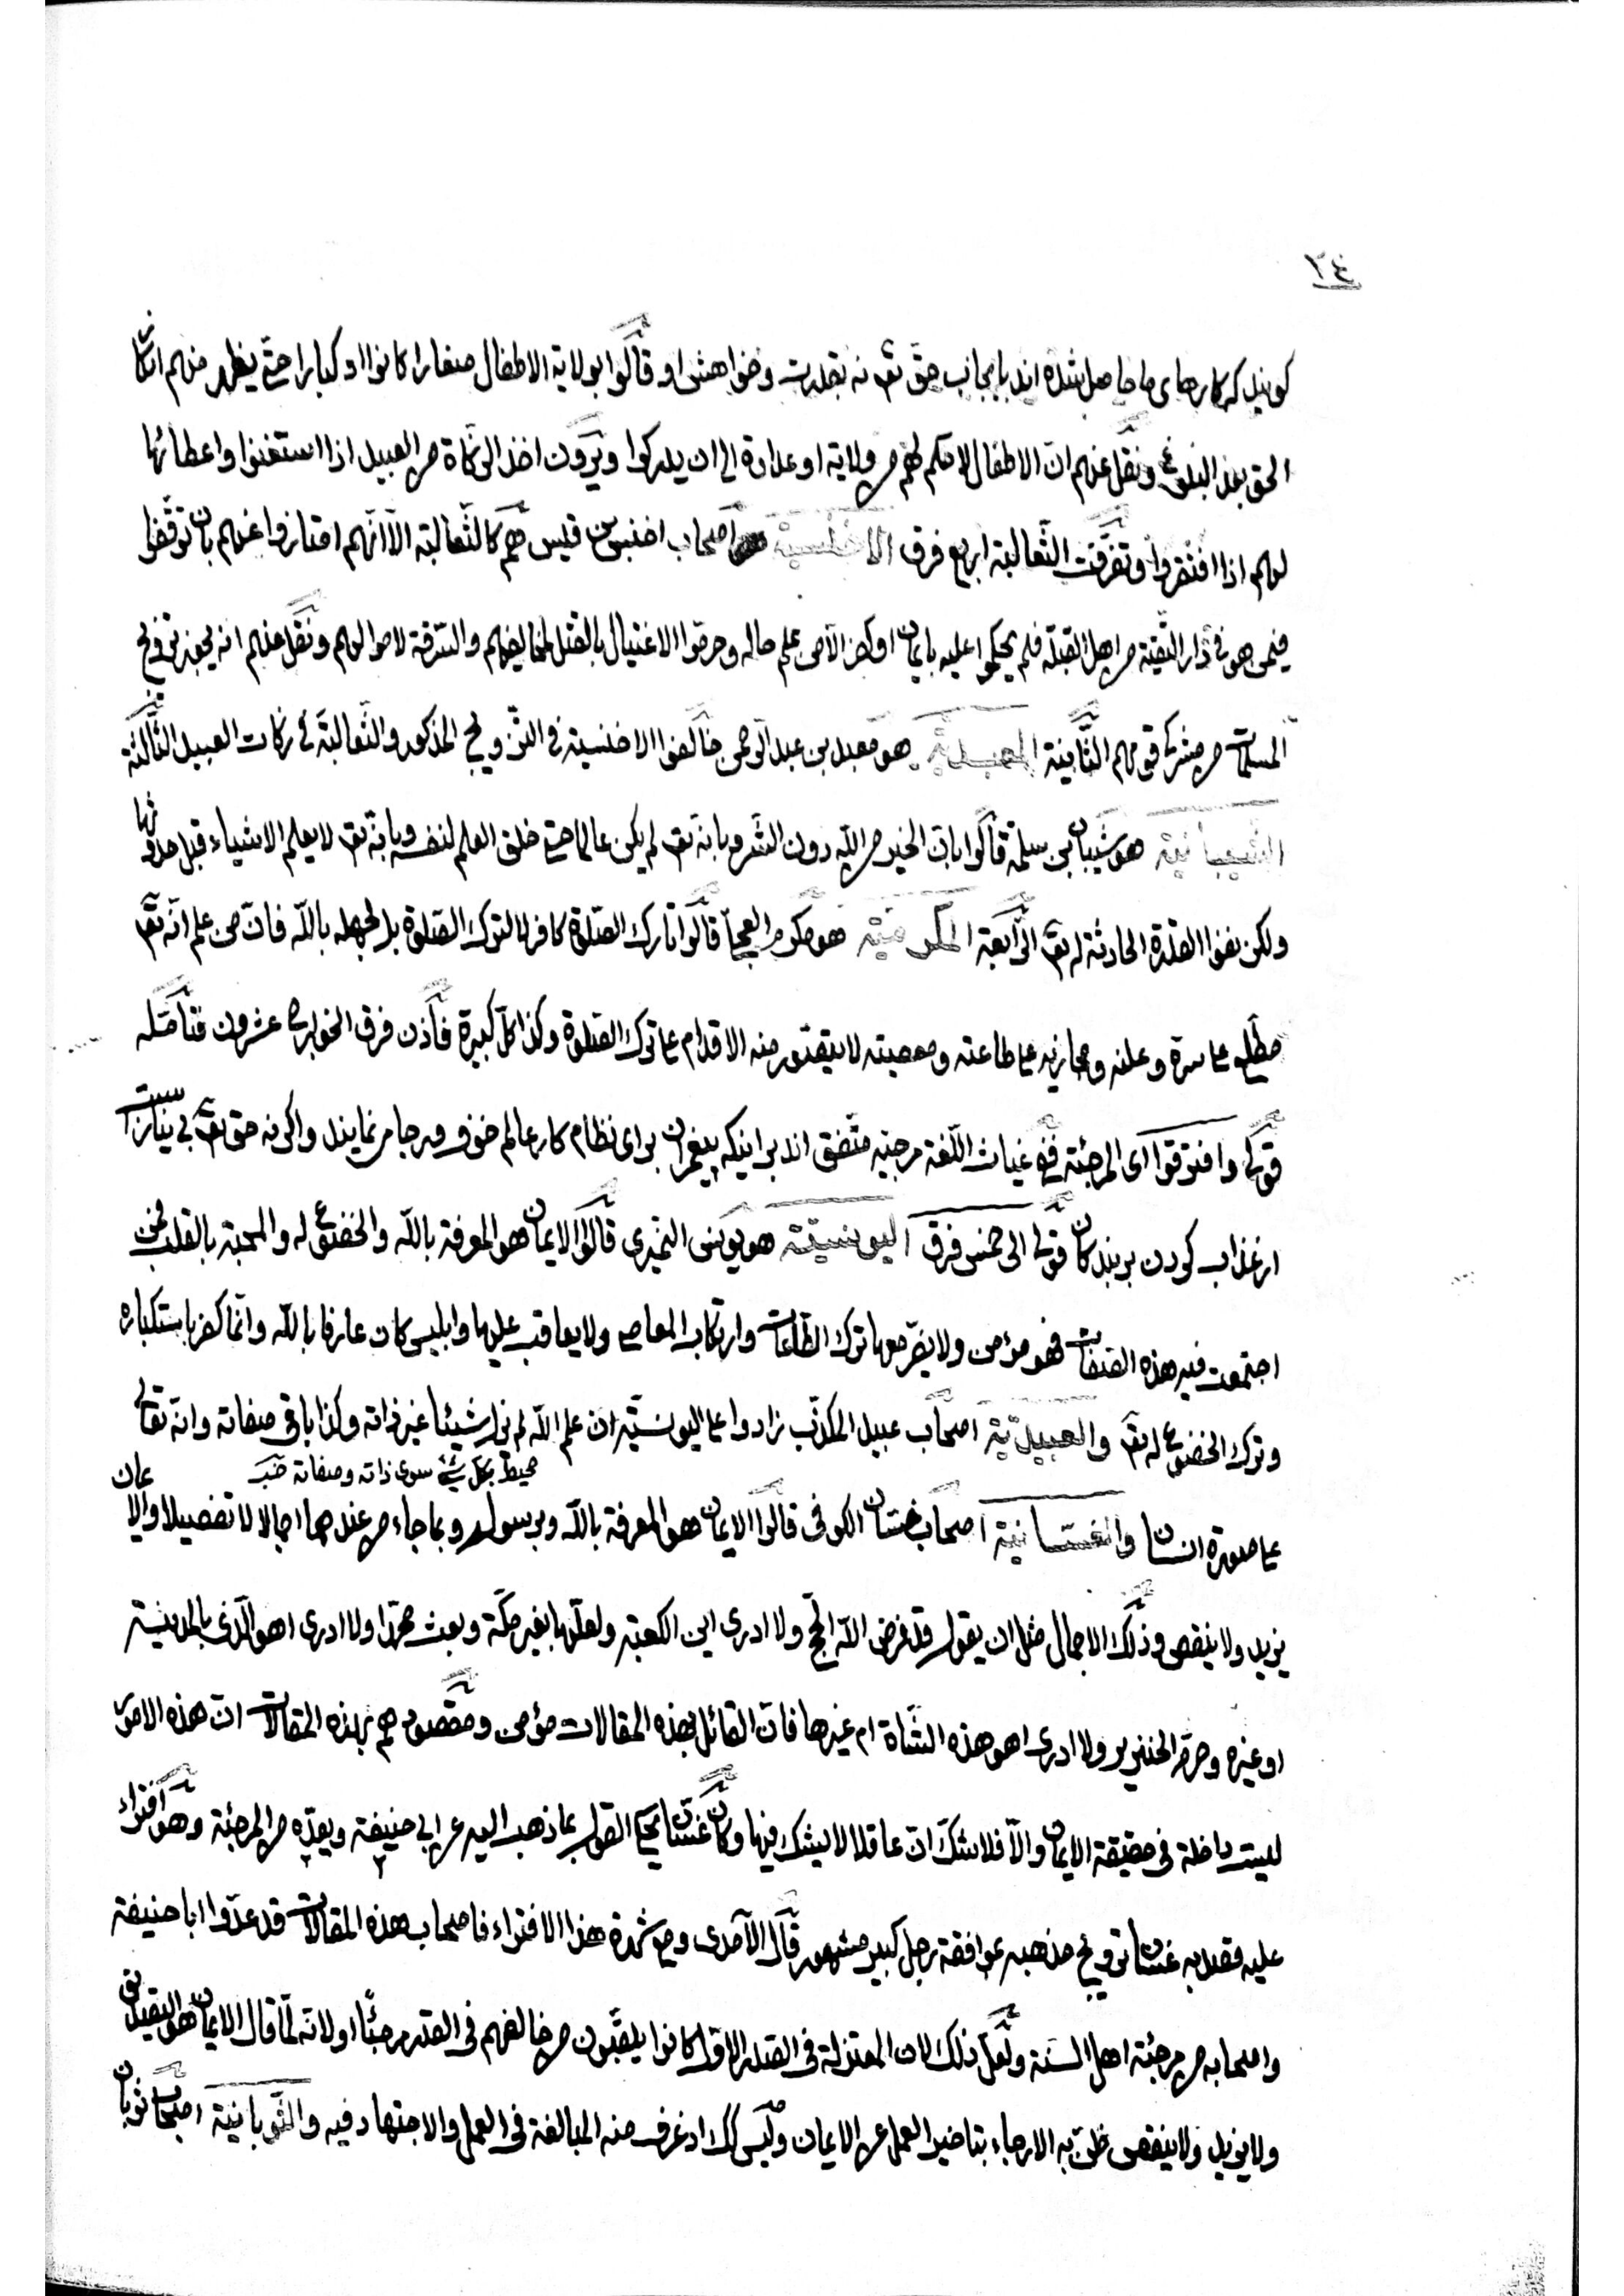 ٢٤
كويند كه كارهاى ما حاصل شده اند بايجاب حق تع نه بقدرت وخواهش او وقالوا بولاية الاطفال صغارا كانوا او كبارا حتى يظهر منهم انكار
الحق بعد البلوغ ونقل عنهم ان الاطفال لا حكم لهم من ولاية او عداوة الى ان يدركوا ويرون اخذ الزكاة من العبيد اذا استغنوا واعطائها
لهم اذا افتقروا وتفرقت الثعالبة اربع فرق الاخنسية اصحاب اخنس بن قيس هم كالثعالبة الا انهم امتازوا عنهم بان توقفوا
فيمن هو في دار التقية من اهل القبلة فلم يحكموا عليه بايمان او كفر الا من علم حاله وحرموا الاغتيال بالقتل لمخالفيهم والسرقة لاموالهم ونقل عنهم انه يجوز تزويج
المسلمات من مشركي قومهم الثانية المعبدية هو معبد بن عبد الرحمن خالفوا الاخنسية في التزويج المذكور والثعالبة في زكات العبيد الثالثة
الشيبانية هو شيبان بن سلمة قالوا بان الخير من الله دون الشر وبانه تع لم يكن عالما حتى خلق العلم لنفسه وبانه تع لا يعلم الاشياء قبل حدوثها
ولكن نفوا القدرة الحادثة له تع الرابعة المكرمية هو مكرم العجلي قالوا تارك الصلوة كافر لا لترك الصلوة بل لجهله بالله فان من علم انه تع
مطلع على سره وعلنه ومجازيه على طاعته ومعصيته لا يتصور منه الاقدام على ترك الصلوة وكذا كل كبيرة فاذن فرق الخوارج عشرون فتامله
قوله وافترقوا اى المرجئة ففي غياث اللغة مرجيه متفق اند براينكه پيغمران براى نظام كار عالم خوف ورجا مى نمايند واكرنه حق تع بى نياز است
از عذاب كردن بر بندكان قوله الى خمس فرق اليونسية هو يونس النميرى قالوا الايمان هو المعرفة بالله والخضوع له والمحبة بالقلب فمن
اجتمعت فيه هذه الصفات فهو مؤمن ولا يضر معها ترك الطاعات وارتكاب المعاصى ولا يعاقب عليها وابليس كان عارفا بالله وانما كفر باستكباره
وترك الخضوع له تع والعبيدية اصحاب عبيد المكذب زادوا على اليونسية ان علم الله لم يزل شيئا غير ذاته وكذا باقى صفاته وانه تعالى
محيط بكل شئ سوى ذاته وصفاته
على صورة انسان والغسانية اصحاب غسان الكوفى قالوا الايمان هو المعرفة بالله وبرسوله وبما جاء من عندهما اجمالا لا تفصيلا والايمان
يزيد ولا ينقص وذلك الاجمال مثل ان يقول قد فرض الله الحج ولا ادرى اين الكعبة ولعلها بغير مكة وبعث محمدا ولا ادرى اهو الذى بالمدينة
او غيره وحرم الخنزير ولا ادرى اهو هذه الشاة ام غيرها فان القائل بهذه المقالات مؤمن ومقصودهم بهذه المقالات ان هذه الامور
ليست داخلة فى حقيقة الايمان والا فلا شك ان عاقلا لا يشك فيها وكان غسان يحكى القول بما ذهب اليه عن ابي حنيفة ويعده من المرجئة وهو افتراء
عليه فقصد به غسان ترويج مذهبه بموافقة رجل كبير مشهور قال الآمدى ومع شدة هذا الافتراء فاصحاب هذه المقالات قد عدوا ابا حنيفة
واصحابه من مرجئة اهل السنة ولعل ذلك لان المعتزلة فى الصدر الاول كانوا يلقبون من خالفهم فى القدر مرجئا او لانه لما قال الايمان هو التصديق
ولا يزيد ولا ينقص ظن به الارجاء بتاخير العمل عن الايمان وليس كك اذ عرف منه المبالغة فى العمل والاجتهاد فيه والثوبانية اصحاب ثوبان